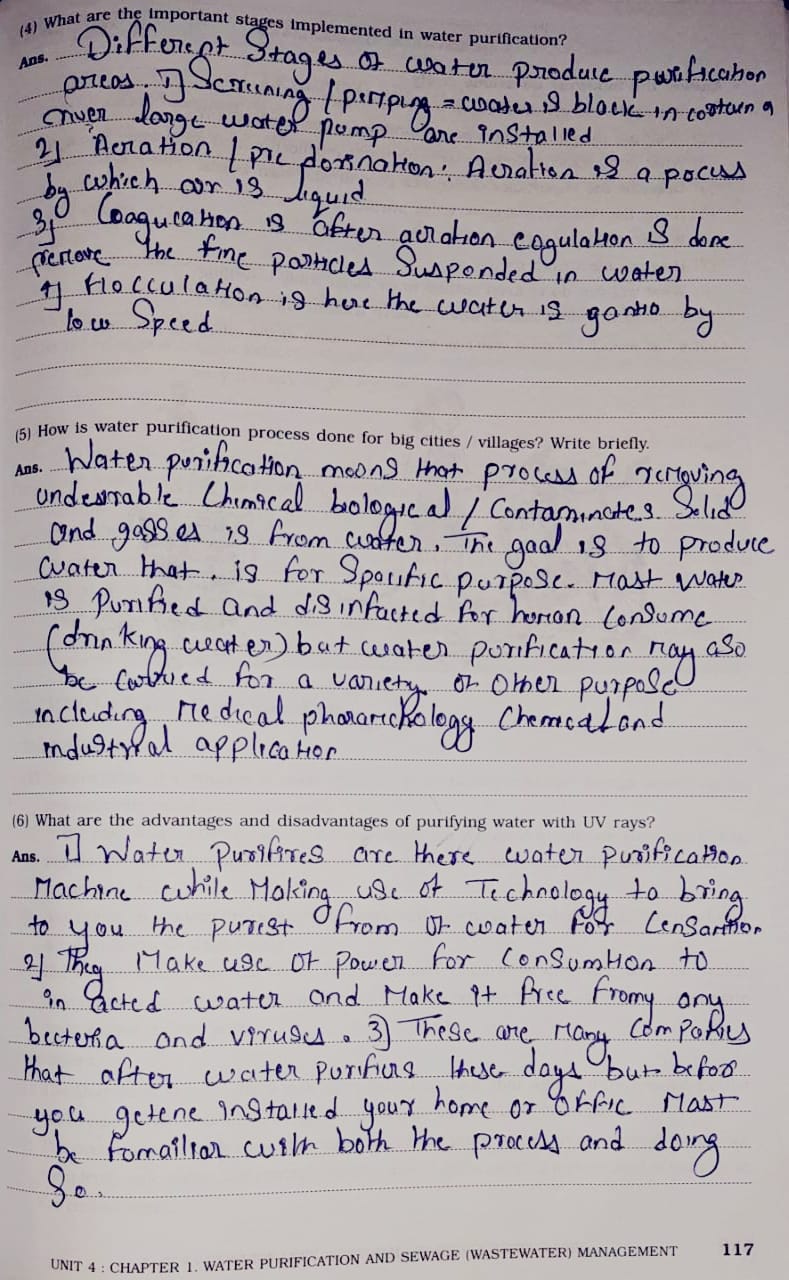 (4) What are the important stages implemented in water purification?
Ans. Different Stages of water produce purification
areas. 1] Screening / pumping = water is block in contain a
river large water pump are installed
2] Aeration / pre : Aeration is a pocess
by which air is liquid
3] Coagucation is after aeration coagulation is done
remove the fine particles Suspended in water
4] Flocculation is here the water is by
low Speed
(5) How is water purification process done for big cities / villages? Write briefly.
Ans. Water purification means that process of removing
undesirable Chemical biological / Contaminates Solid
and gasses is from water. The goal is to produce
water that. is for Spacific purpose. Mast water
is Purified and disinfacted for human Consume
(drinking water) but water purification may aso
be for a variety of Other purpose
including Medical Chemical and
industrial application
(6) What are the advantages and disadvantages of purifying water with UV rays?
Ans. 1] Water Purifires are there water purification
Machine while Making use of Technology to bring
to you the purest from of water for
2] They Make use of power for Consumtion to
in acted water and Make it free fromy any
becteria and viruses. 3] These are Many Companies
that after water purifiers these days but before
you getene installed your home or offic Mast
be Fomailiar with both the process and doing
So.
UNIT 4 : CHAPTER 1. WATER PURIFICATION AND SEWAGE (WASTEWATER) MANAGEMENT 117